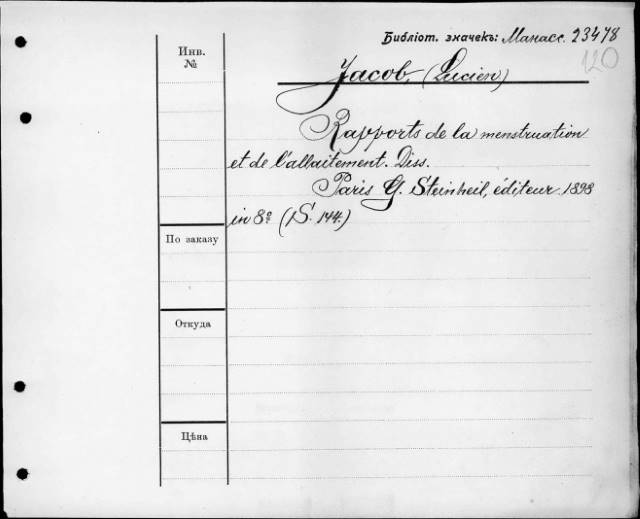 Библіот. значекъ: Манасс. 23478
120
Инв.
№
Jacob, (Lucien)
Rapports de la menstruation
et de l'allaitement. Diss.
Paris G. Steinheil, éditeur 1898
in 8º (S. 144.)
По заказу
Откуда
Цѣна